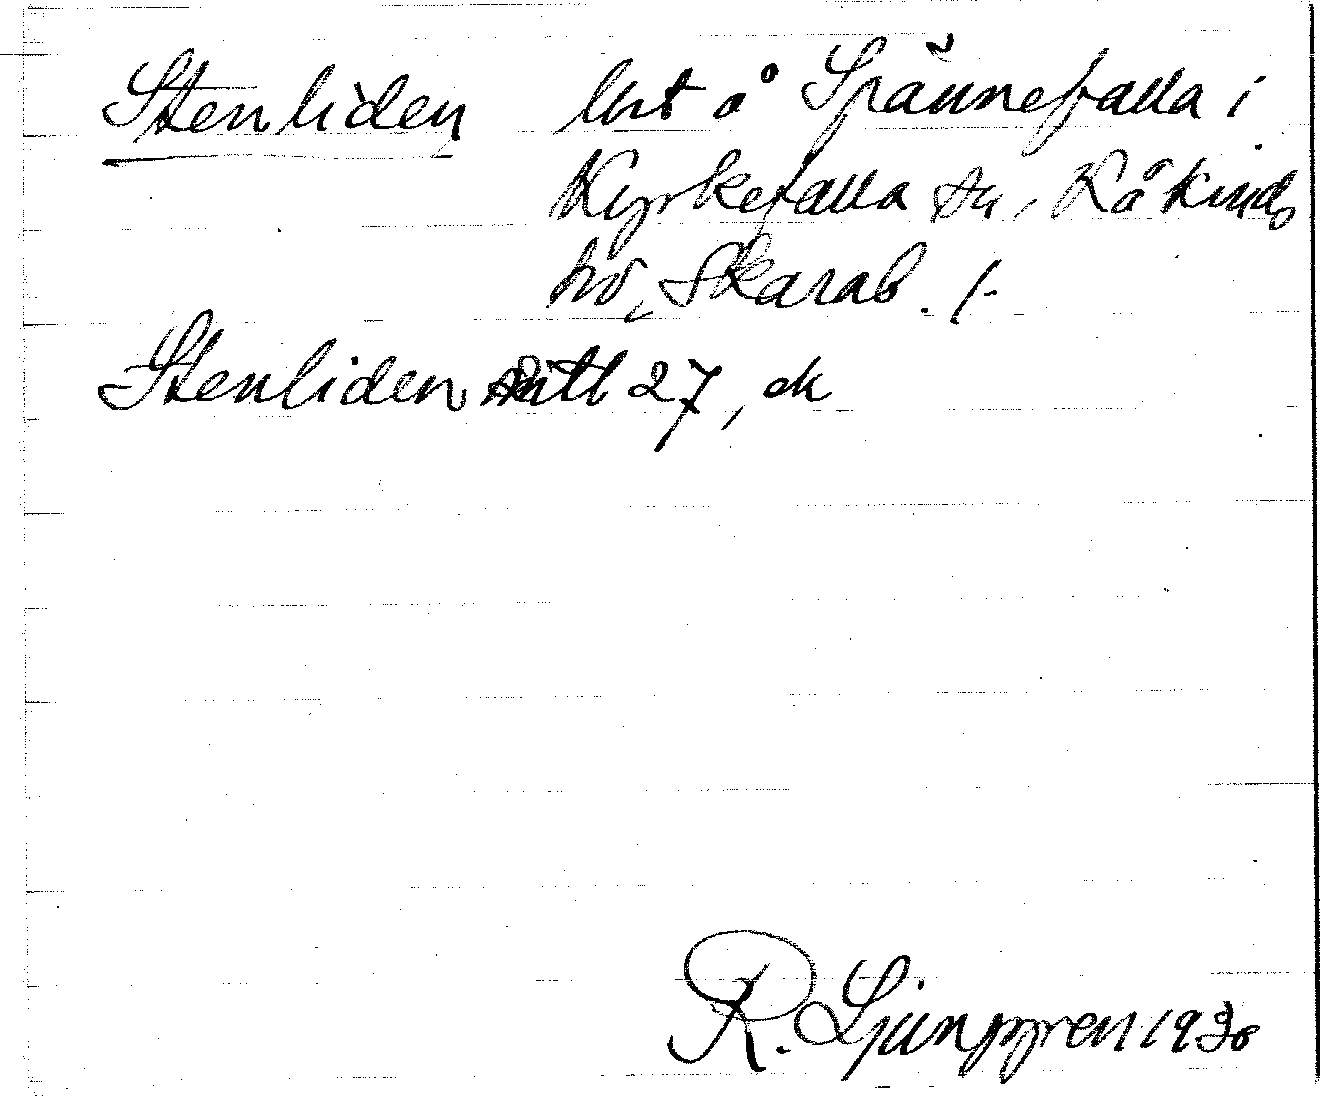 Stenliden lht å Spännefalla i
Kyrkefalla sn, Kåkinds
hd, Skarab. l.
Stenliden 27, ek
R. Ljunggren 1930